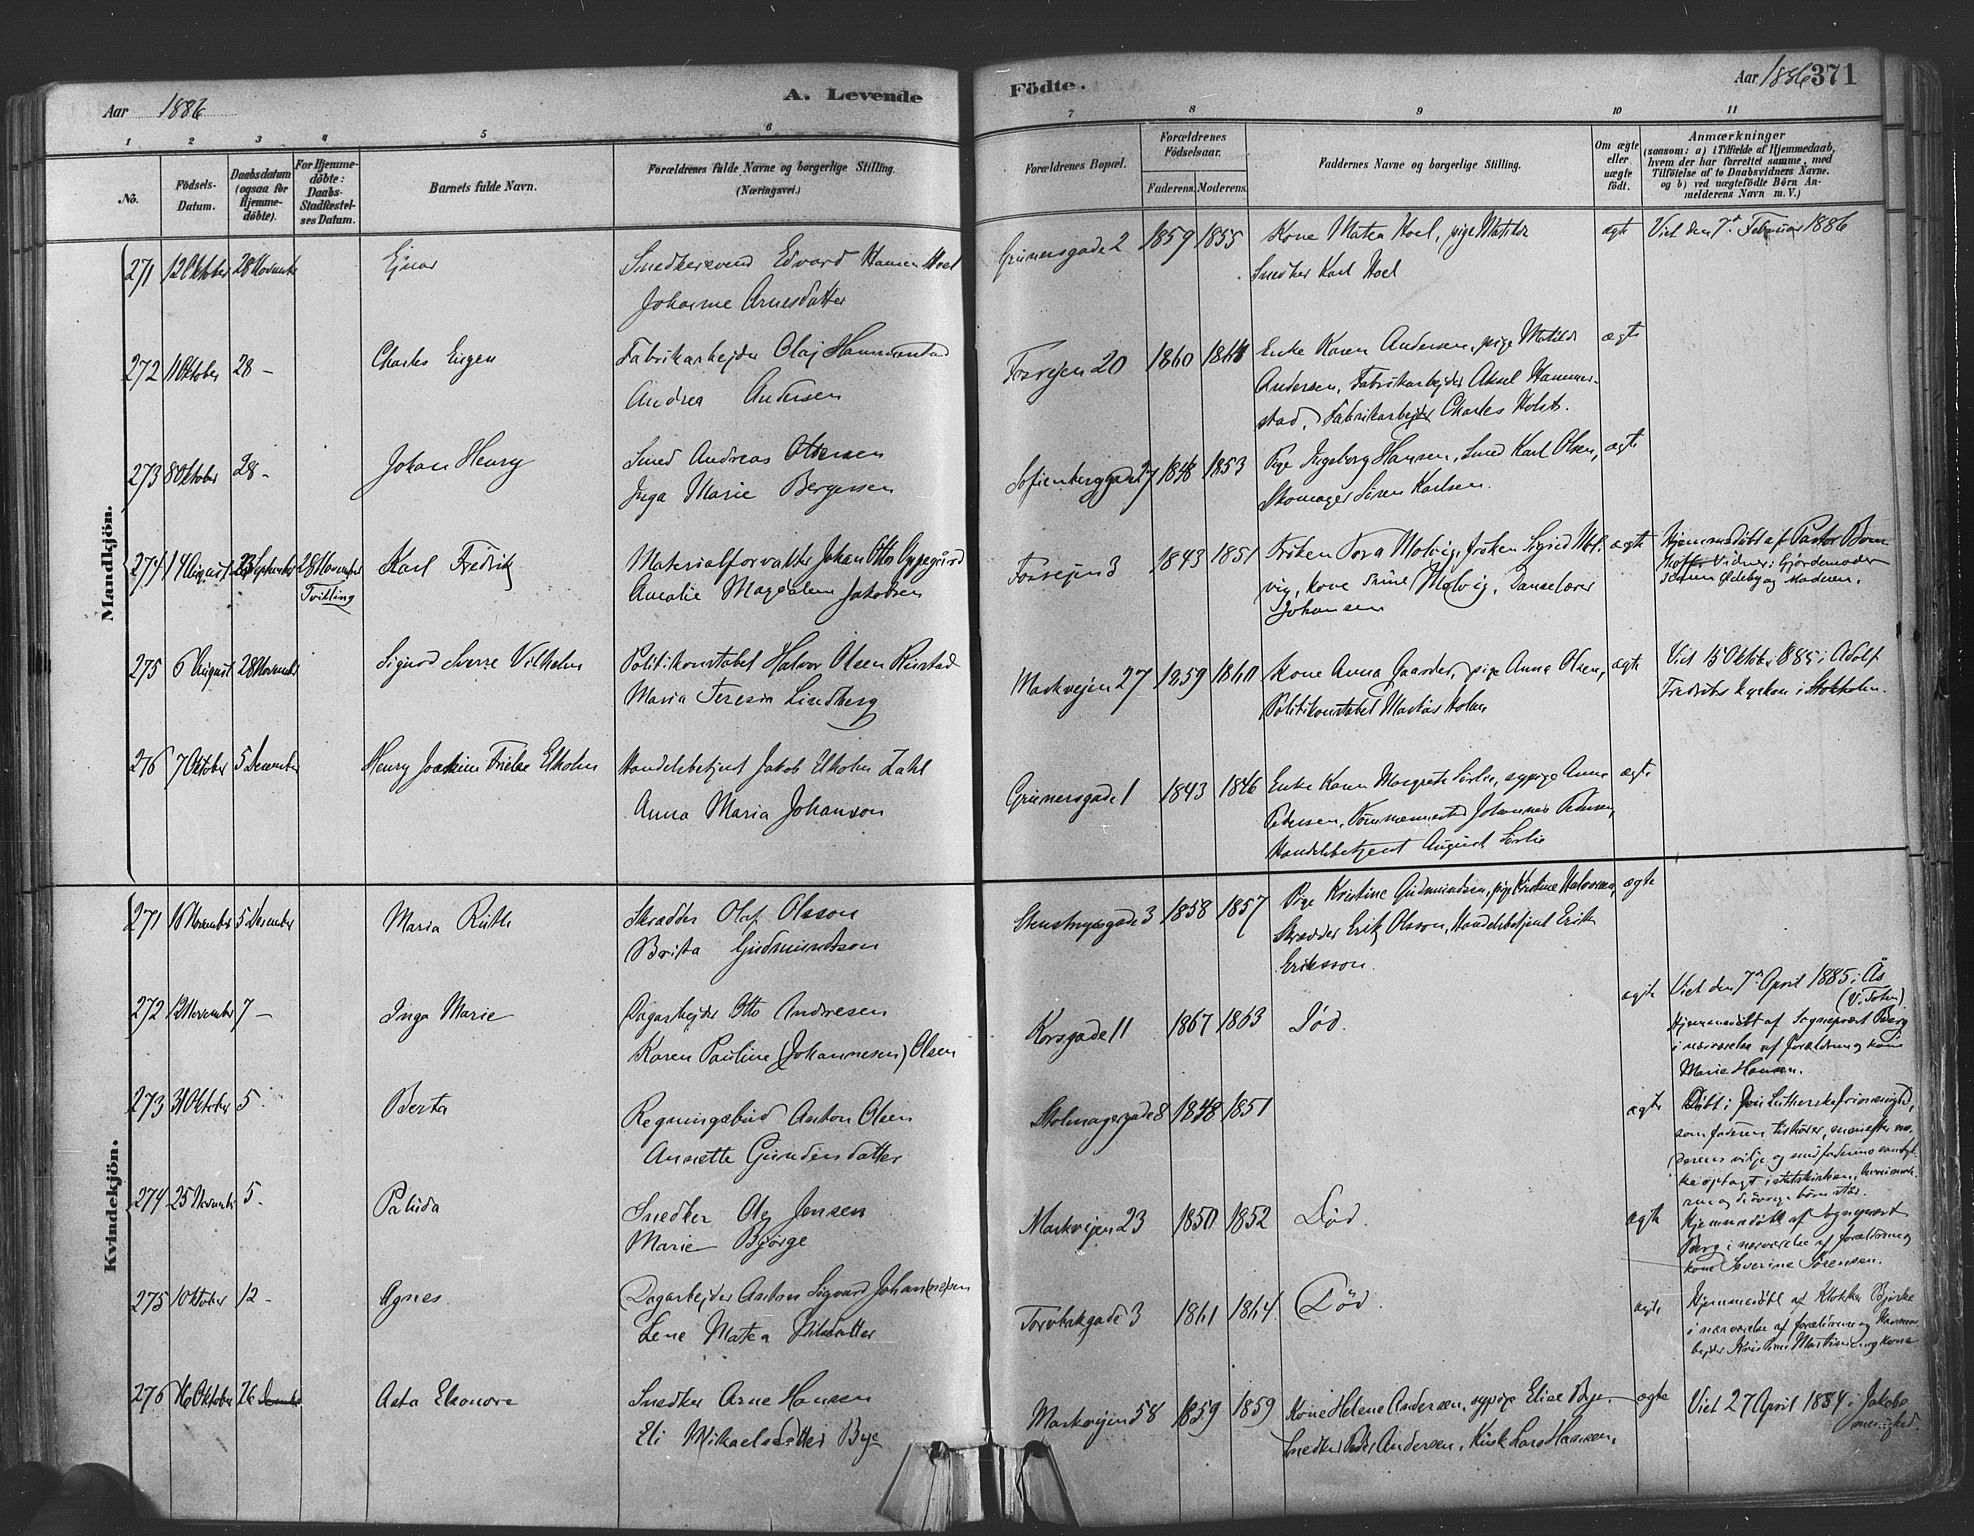 Aar 1886
A. Levende
Födte.
Aar 1886 371
1 2 3 4 5 6 7 8 9 10 11
No.
Födsels-
Datum.
Daabsdatum
(ogsaa for
Hjemme-
döbte).
For Hjemme-
döbte:
Daabs-
Stadfæstel-
ses Datum.
Barnets fulde Navn.
Forældrenes fulde Navne og borgerlige Stilling.
(Næringsvei.)
Forældrenes Bopæl.
Forældrenes
Födselsaar.
Faderens. Moderens.
Faddernes Navne og borgerlige Stilling.
Om ægte
eller
uægte
födt.
Anmærkninger
(saasom: a) i Tilfælde af Hjemmedaab,
hvem der har forrettet samme, med
Tilföielse af to Daabsvidners Navne.
og b) ved uægtefödte Börn An-
melderens Navn m. V.)
Mandkjön.
271 12 Oktober 28 November Ejnar Snedkersvend Edvard Hansen Hoel
Johanne Arnesdatter
Grünersgade 2 1859 1855 Kone Matea Hoel, pige Matilde
Snedker Karl Hoel
ægte Viet den 7de Februar 1886
272 11 Oktober 28 – Charles Eugen Fabrikarbejder Olaf Hammerstad
Andrea Andersen
Fossvejen 20 1860 1861 Enke Karen Andersen, pige Matilde
Andersen, Fabrikarbejder Aksel Hammer-
stad, Fabrikarbejder Charles Holst.
ægte
273 8 Oktober 28 - Johan Henry Smed Andreas
Inga Marie Bergersen
Sofienberggade 27 1848 1853 Pige Ingeborg Hansen, Smed Karl Olsen,
Skomager Sören Karlsen.
ægte
274 14 August 23 September 28 November
Tvilling
Karl Fredrik Materialforvalter Johan Otto Oppegård
Amalie Magdalene Jakobsen
Fossvejen 3 1843 1851 Fröken Tora Molvig, fröken Sigrid Mol-
vig, kone Molvig, Danselærer
Johansen
ægte Hjemmedöbt af Pastor
Vidner: Gjordemoder
Ödeby og Moderen.
275 6 August 28 November Sigurd Sverre Vilhelm Politikonstabel Halvor Olsen Rustad
Maria Teresia Lindberg
Markvejen 27 1859 1860 Kone Anna Gaarder, pige Anna Olsen,
Politikonstabel Holm
ægte Viet 15 Oktober 1885 i Adolf
Fredriks kyrkan i Stokholm.
276 7 Oktober 5 Desember Henry Joakim Friele Elholm Handelsbetjent Jakob Elholm Zahl
Anna Maria Johanson
Grünersgade 1 1843 1846 Enke Karen Margrete Sörlie, sypige Anna
Pedersen, Tömmermester Johannes Pedersen,
Handelsbetjent August Sörlie
ægte
Kvindekjön.
271 16 November 5 Desember Maria Ruth Skrædder Olof Olsson
Brita Gudmundsson
Stenstrupsgade 3 1858 1857 Pige Kristine Gudmundsen, pige Kristine Halvorsen,
Skrædder Erik Olsson, Handelsbetjent Erik
Eriksson.
ægte
272 12 November 7 – Inga Marie Dagarbejder Otto Andresen
Karen Pauline (Johannesen) Olsen
Korsgade 11 1867 1863 Död.
ægte Viet den 7de April 1885 i Ås
(V. Toten).
Hjemmedöbt af Sogneprest Berg
i nærværelse af forældrene og kone
Marie Hansen.
273 31 Oktober 5 - Berta Regningsbud Anton Olsen
Annette Gundersdatter
Stolmagergade 8 1848 1851
ægte Döbt i Den Lutherske frimenighed,
som faderen tilhörer, men efter mo-
derens vilje og med faderens samtyk-
ke optagt i statskirken, hvori mode-
ren og de övrige börn står.
274 25 November 5 - Palida Snedker Ole Jensen
Marie Bjørge
Markvejen 23 1850 1852 Död.
ægte Hjemmedöbt af Sogneprest
Berg i nærværelse af forældrene og
kone Severine Sörensen.
275 1 Oktober 12 - Agnes Dagarbejder Anton Sigvard Johan(ne)sen
Lene Matea Nilsdatter
Torvbakgade 3 1861 1864 Död.
ægte Hjemmedöbt af Klokker Bjerke
i nærværelse af forældrene og
Kristian Martinsen og kone
276 16 Oktober 26 Desember Asta Eleonore Snedker Arne Hansen
Eli Mikaelsdatter Bye
Markvejen 58 1859 1859 Kone Helene Andersen, sypige Elise Bye,
Snedker Peder Andersen, Kusk Lars Hansen.
ægte Viet 27 April 1884 i Jakobs
menighed.